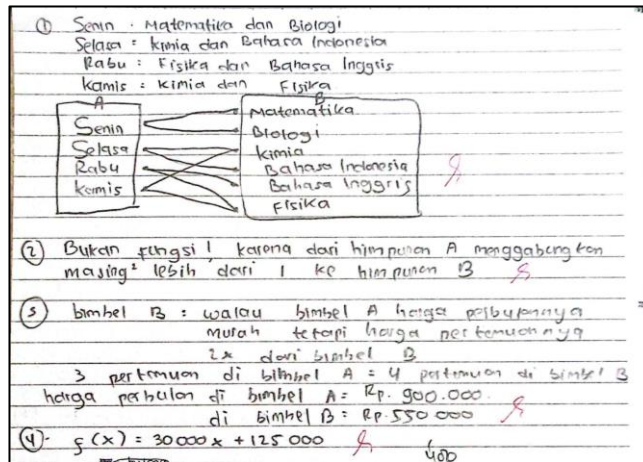 ① Senin : Matematika dan Biologi
Selasa : kimia dan Bahasa Indonesia
Rabu : Fisika dan Bahasa Inggris
kamis : kimia dan Fisika
A
Senin
Selasa
Rabu
kamis
B
Matematika
Biologi
kimia
Bahasa Indonesia
Bahasa Inggris
Fisika
② Bukan fungsi, karena dari himpunan A menggabungkan
masing² lebih dari 1 ke himpunan B
③ bimbel B : walau bimbel A harga perbulannya
murah tetapi harga pertemuannya
2x dari bimbel B
3 pertemuan di bimbel A = 4 pertemuan di bimbel B
harga perbulan di bimbel A = Rp. 900.000.
di bimbel B = Rp. 550 000
④. f(x) = 30000x + 125 000